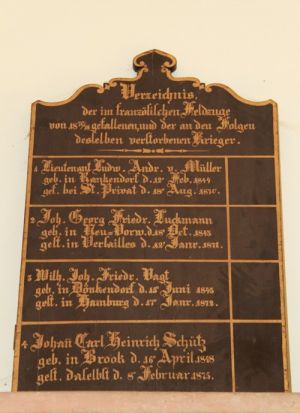 Verzeichnis,
der im französischen Feldzuge
von 18 70/71 gefallenen, und der an den Folgen
desselben verstorbenen Krieger.
1 Lieutenant Ludw. Andr. v. Müller
geb. in Rankendorf d. Feb. 1844
gef. bei St. Privat d. 18t Aug. 1870.
2. Joh. Georg Friedr. Luckmann
geb. in Neu-Vorw. d. 18t Oct. 1845
gest. in Versailles d. 12t Janr. 1871.
3 Wilh. Joh. Friedr. Vagt
geb. in Dönkendorf d. 15t Juni 1846
gest. in Hamburg d. 17t Janr. 1872.
4 Johañ Carl Heinrich Schütz
geb. in Brook d. 16t April 1848
gest. daselbst d. 8t Februar 1875.